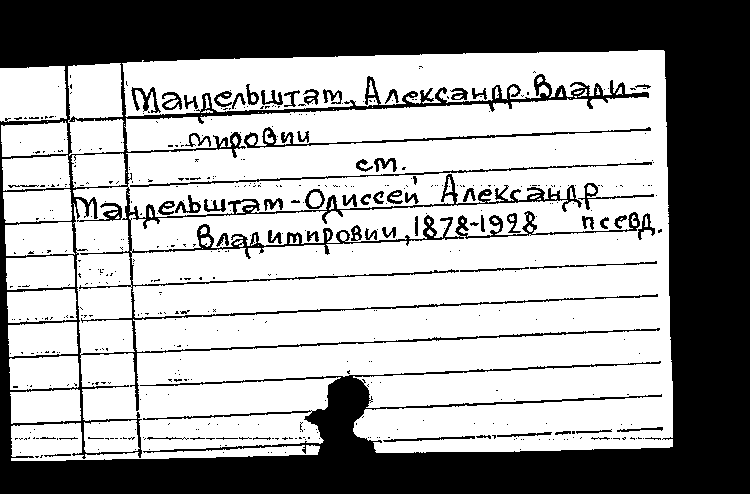 Мандельштам, Александр Влади-
мирович
см.
Мандельштам-Одиссей Александр
Владимирович, 1878-1928 псевд.